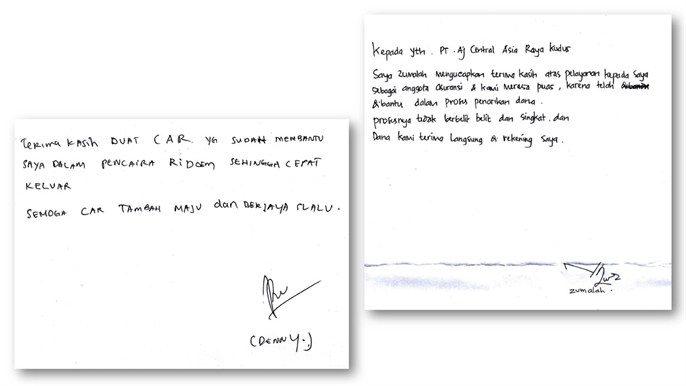 Terima kasih buat CAR yg sudah membantu
saya dalam pencaira ridoem sehingga cepat
keluar
Semoga CAR tambah maju dan berjaya slalu.
(DENNY.)
Kepada yth. PT. Aj Central Asia Raya Kudus
Saya Zumalah mengucapkan terima kasih atas pelayanan kepada saya
sebagai anggota asuransi & kami merasa puas, karena telah
dibantu dalam proses penarikan dana.
prosesnya tidak berbelit belit dan singkat. dan
Dana kami terima langsung di rekening saya.
zumalah.